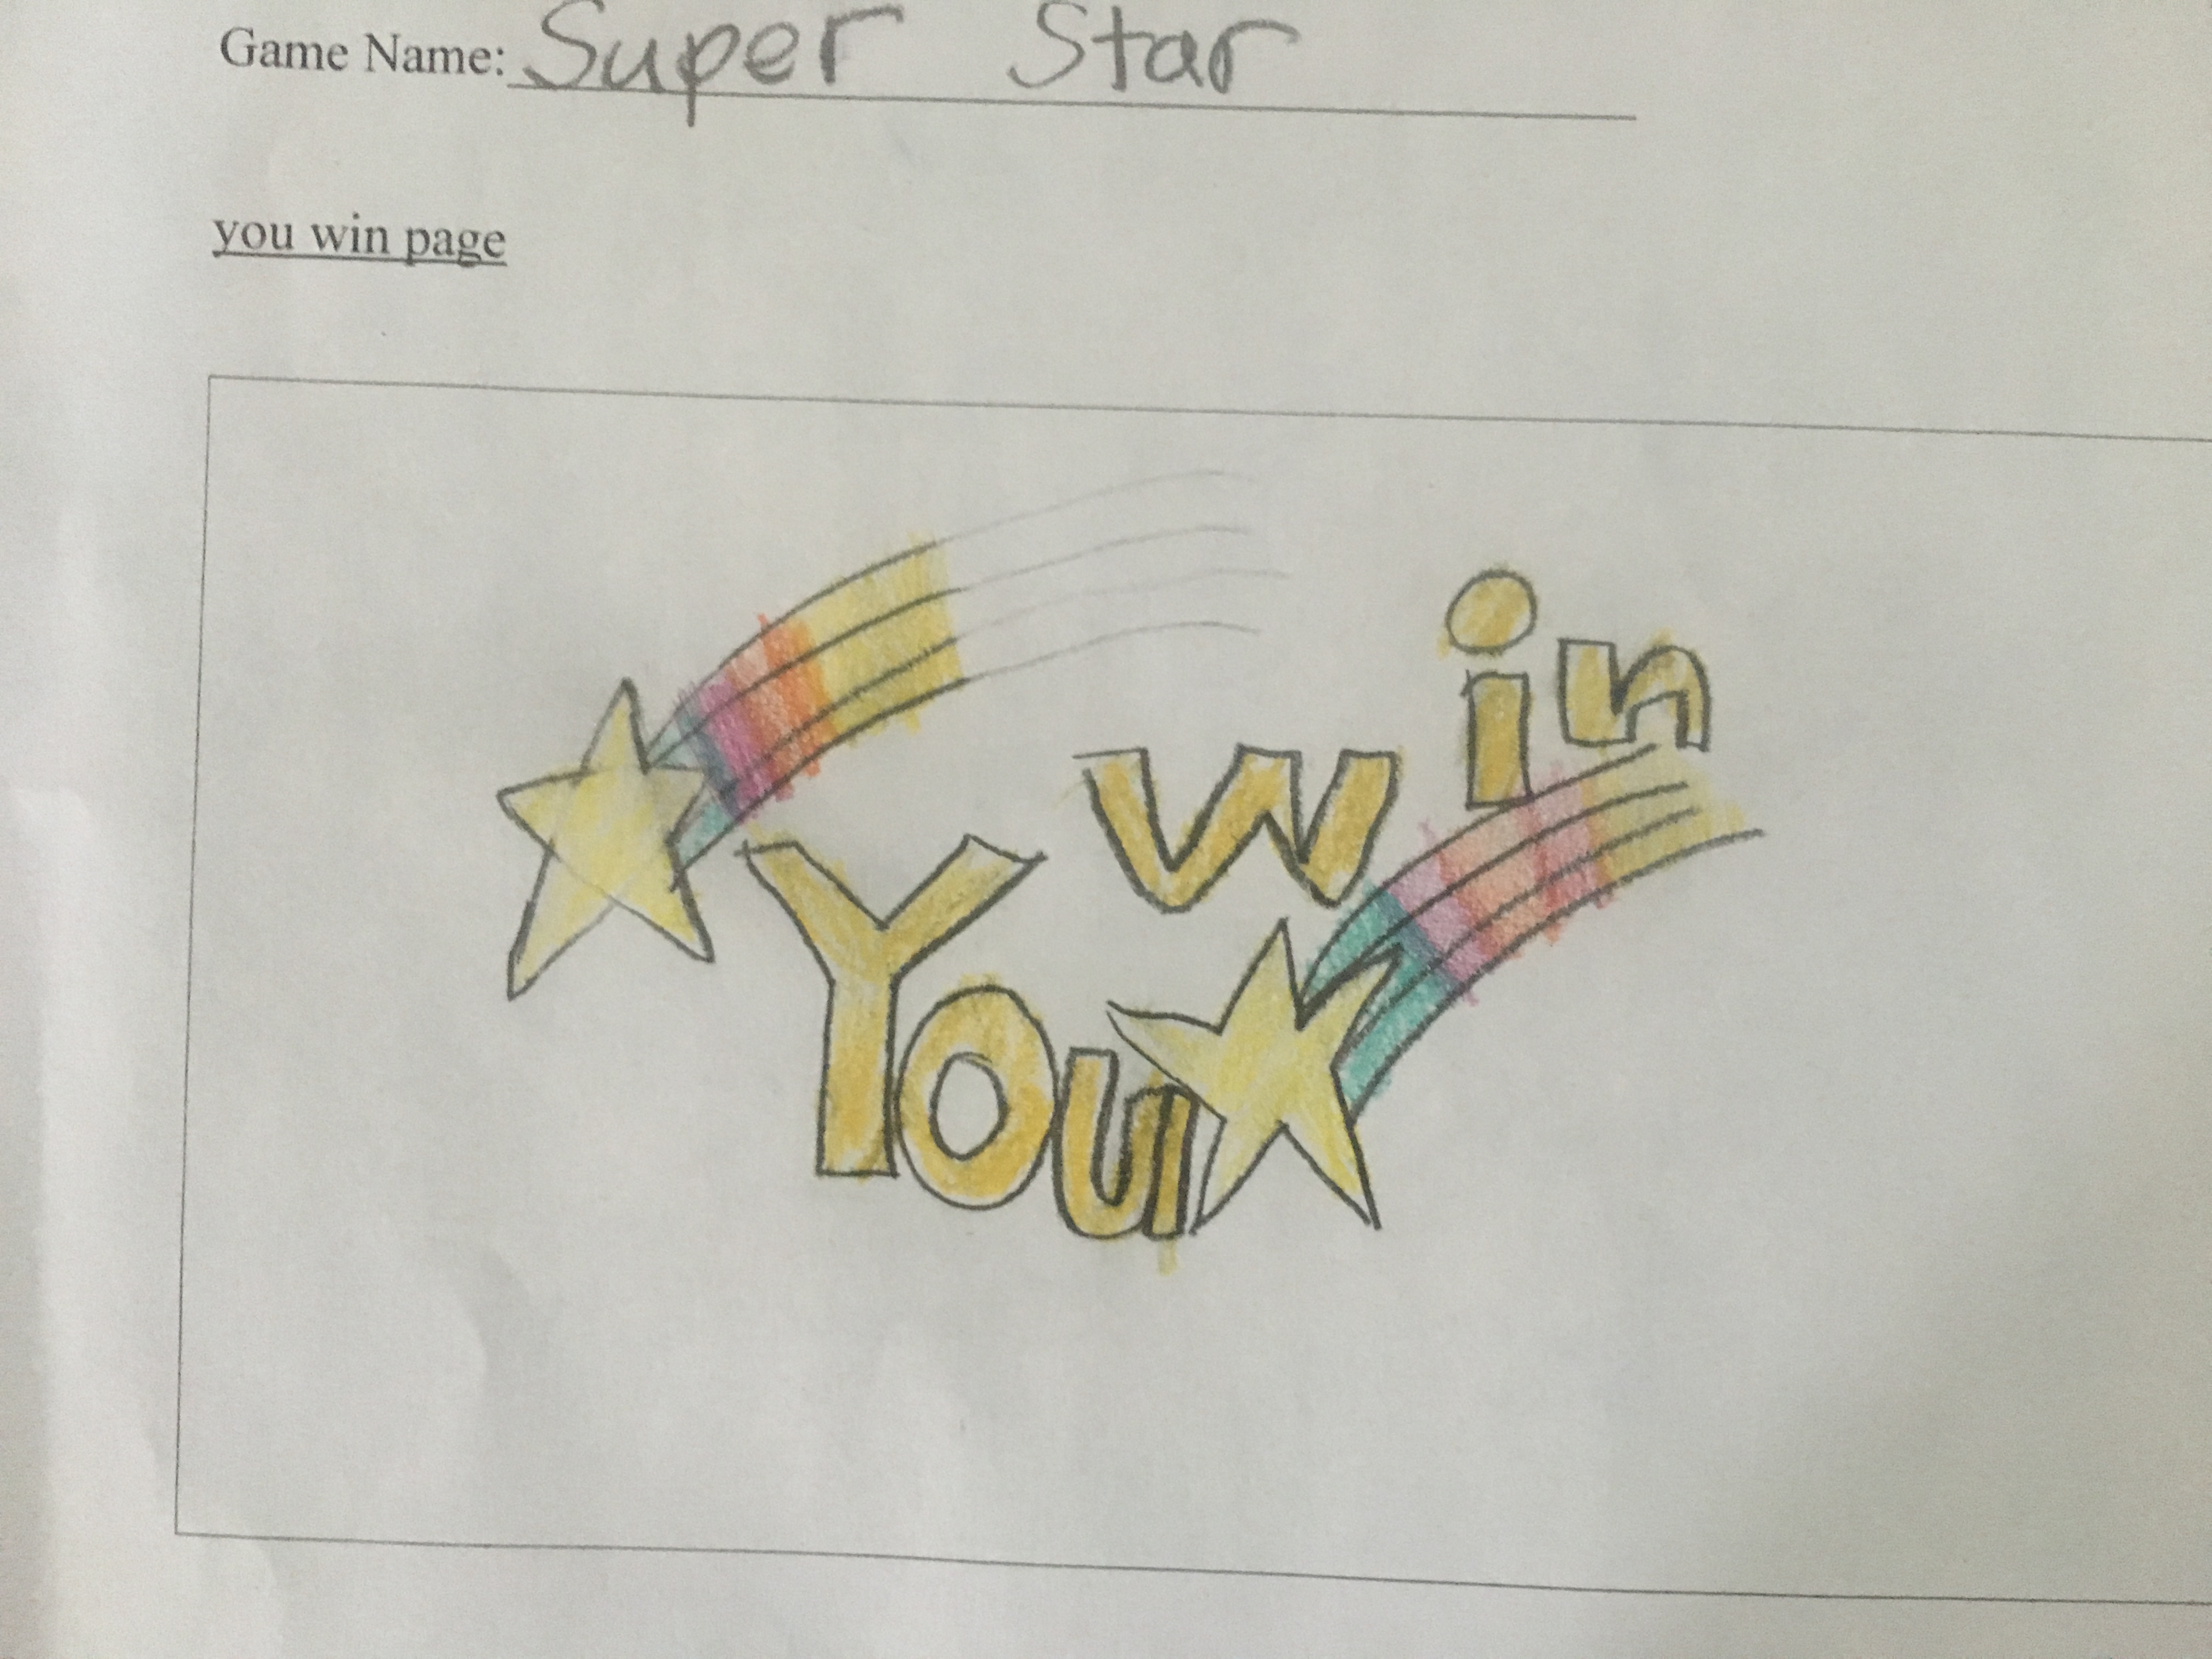 Game Name: Super Star
you win page
You Win